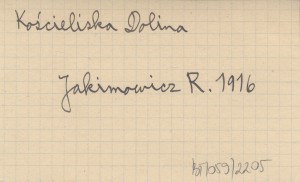 Kościeliska Dolina
Jakimowicz R. 1916